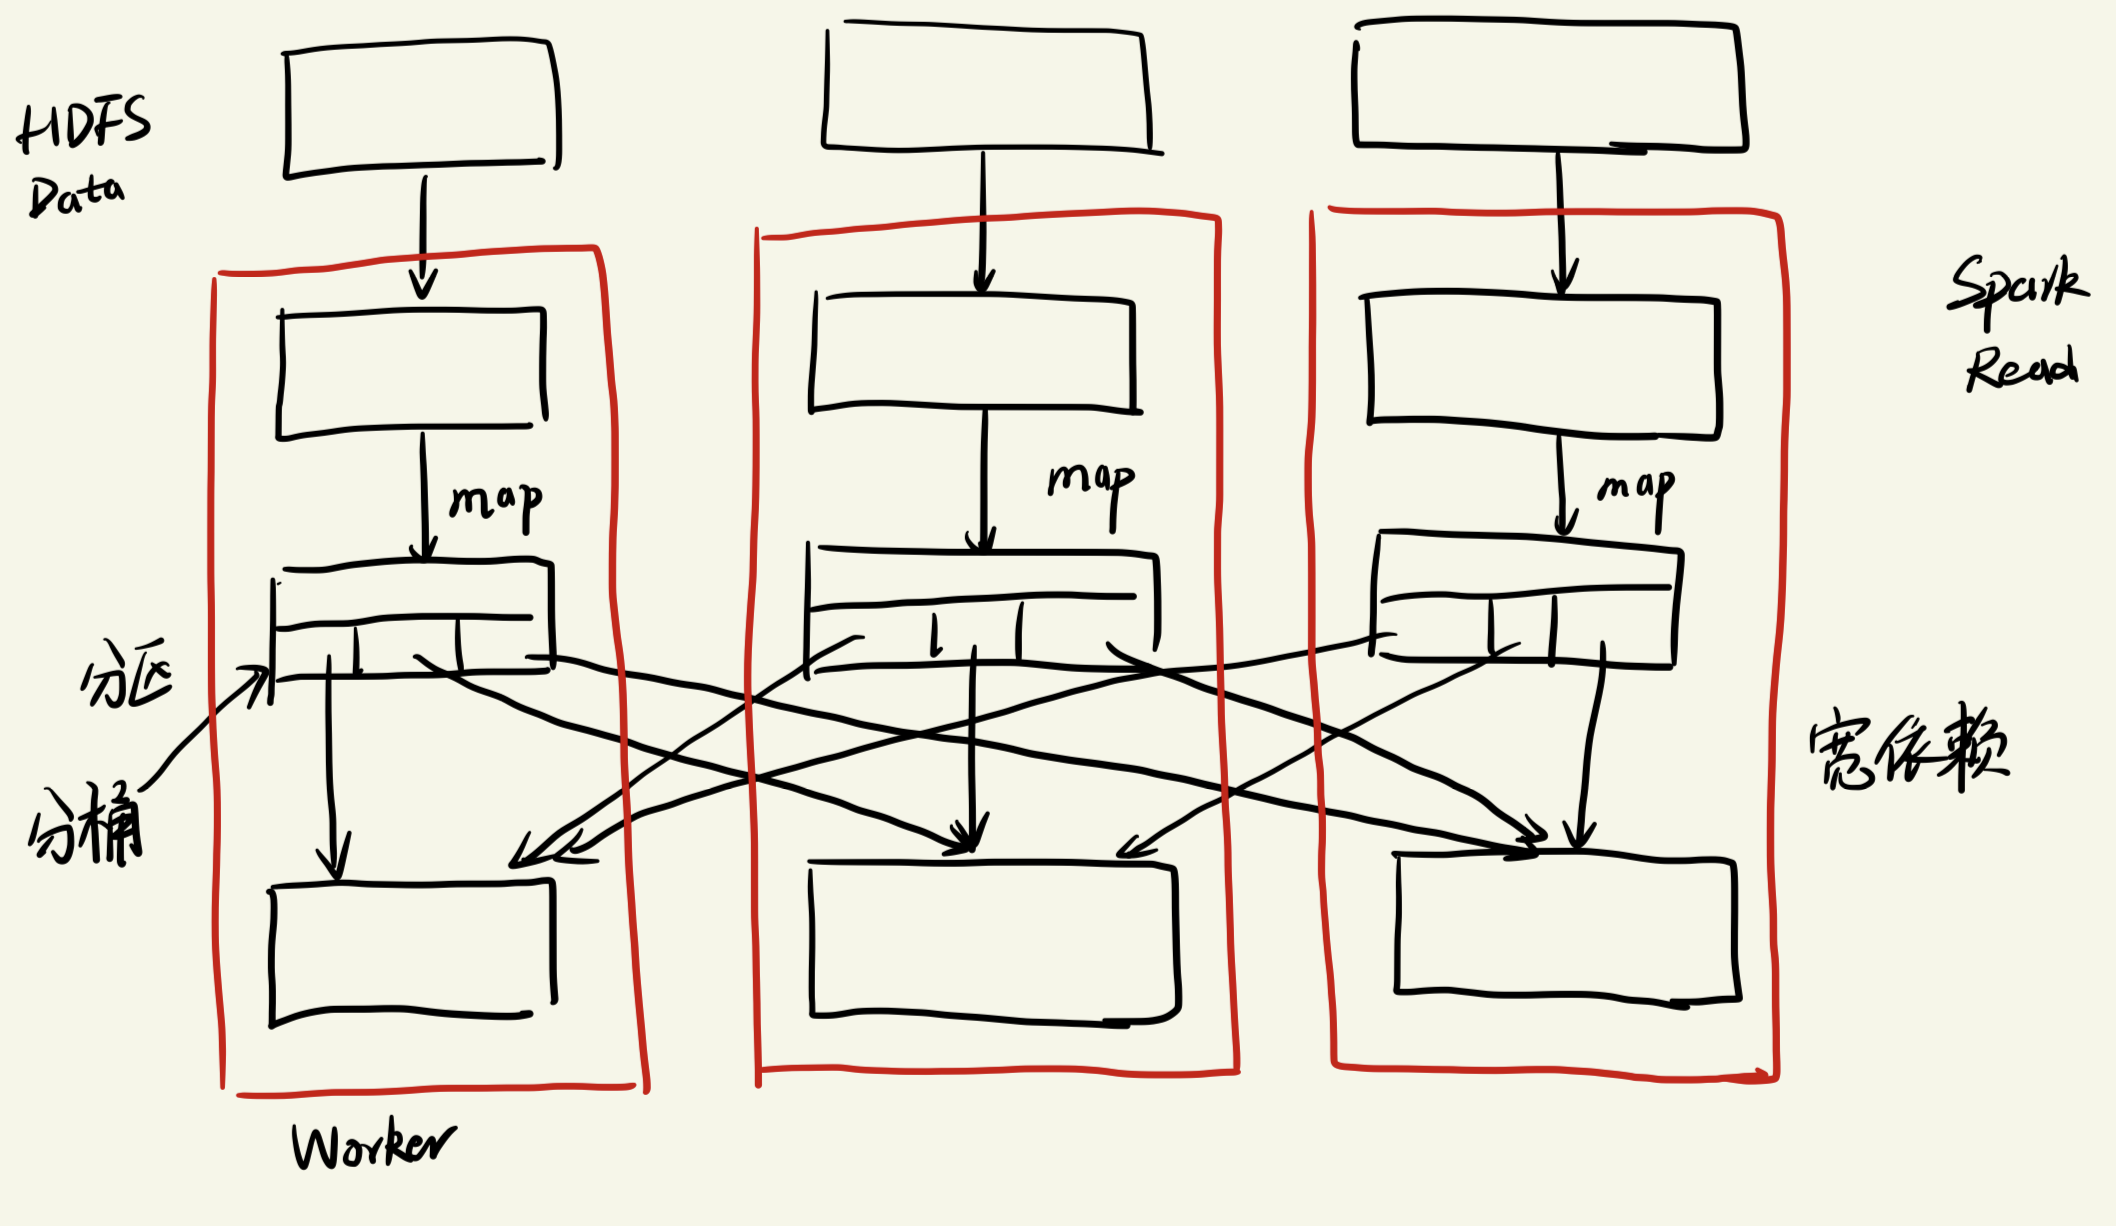 HDFS
Data
Spark
Read
map
map
map
分区
分桶
宽依赖
Worker